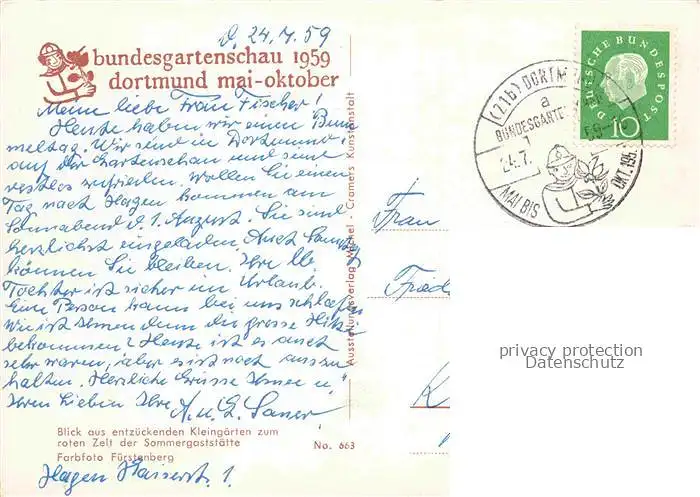 D. 24.7.59
bundesgartenschau 1959
dortmund mai-oktober
Meine liebe Frau Fischer!
Heute haben wir einen Bum
meltag. Wir sind in Dortmund
auf der Gartenschau und sind
restlos zufrieden. Wollen Sie einen
Tag nach Hagen kommen am
Sonnabend d. 1. August. Sie sind
herzlichst eingeladen. Auch Sonntag
können Sie bleiben. Ihre lb
Tochter ist sicher im Urlaub.
Eine Person kann bei uns schlafen
Wie ist Ihnen denn die grosse Hitze
bekommen? Heute ist es auch
sehr warm, aber es ist noch auszu
halten. Herzliche Grüsse Ihnen u.
Ihren Lieben Ihre
A. u. E. Sauer
Blick aus entzückenden Kleingärten zum
roten Zelt der Sommergaststätte
Farbfoto Fürstenberg No. 663
Hagen Kaiserstr. 1.
Ausstellungsverlag - Cramers Kunstanstalt
Frau
Fried
K
(21b) DORTM
a
BUNDESGARTEN
1
24.7.
59
MAI BIS OKT. 195
DEUTSCHE BUNDESPOST
10
privacy protection
Datenschutz